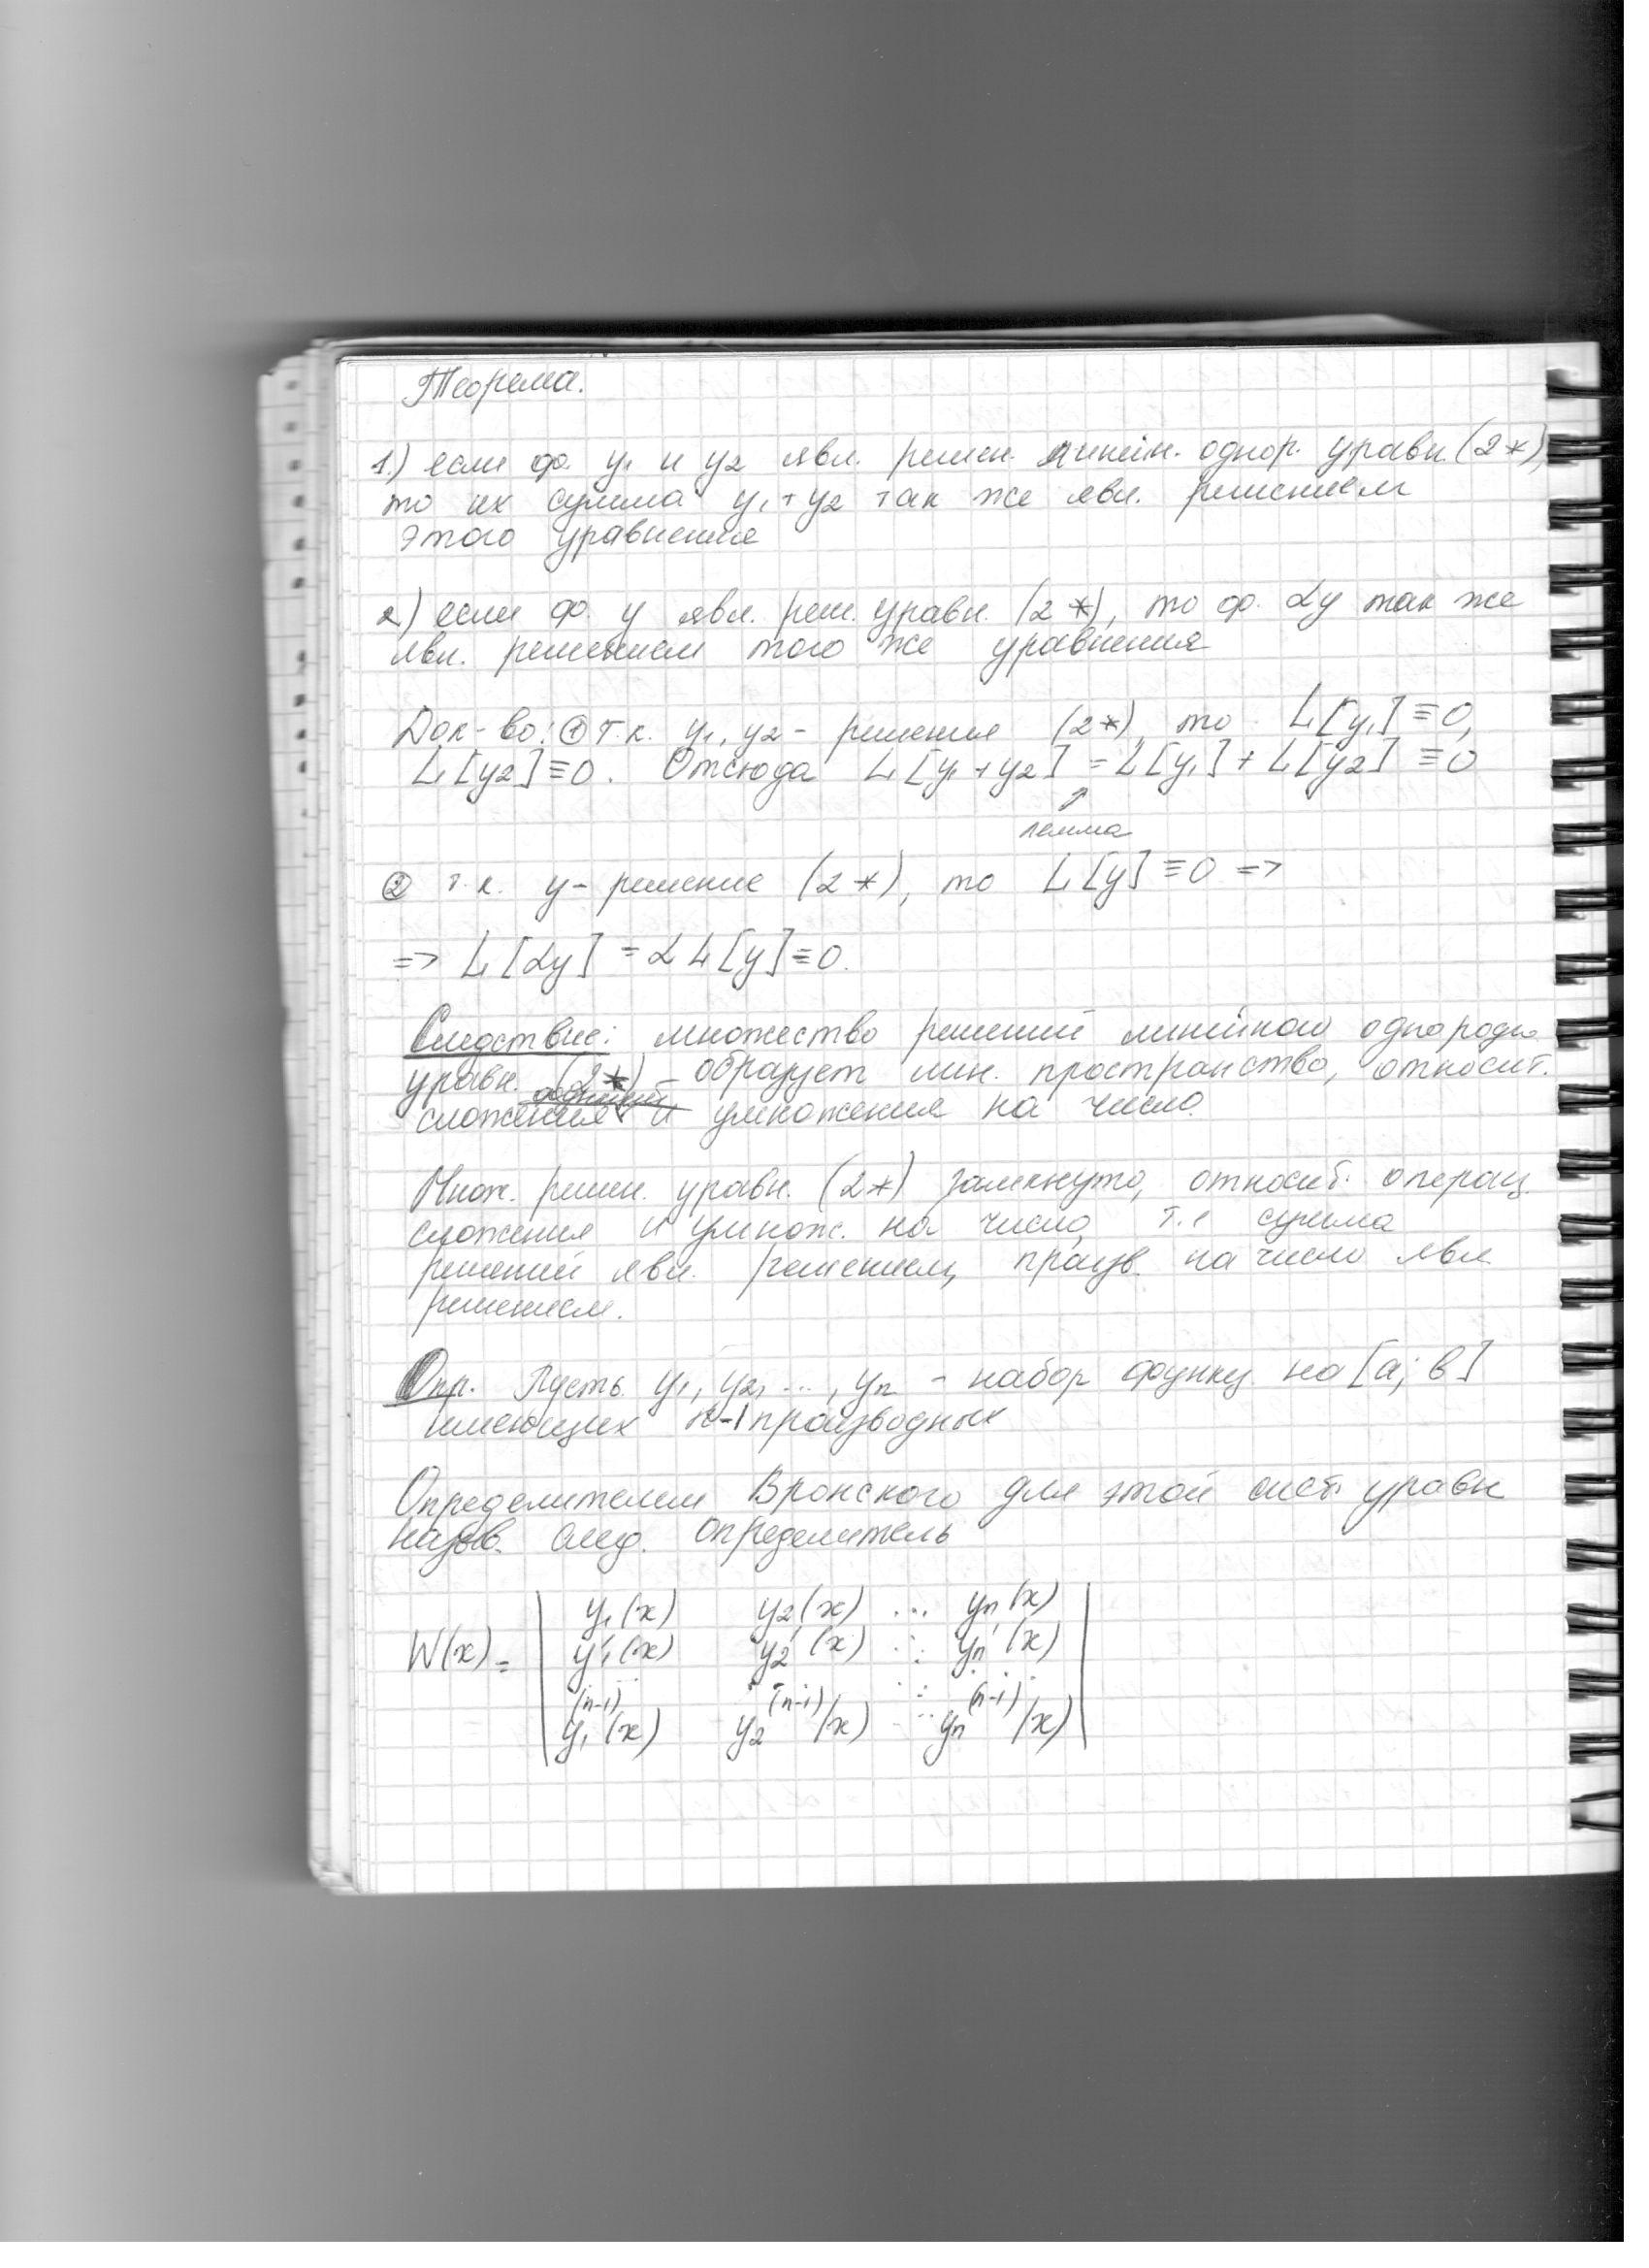 Теорема.
1.) если ф. y₁ и y₂ явл. решен. линейн. однор. уравн. (2*),
то их сумма y₁+y₂ так же явл. решением
этого уравнения
2) если ф. y явл. реш. уравн. (2*), то ф. αy так же
явл. решением того же уравнения
Док-во: ① т.к. y₁, y₂ - решения (2*), то L[y₁]≡0,
L[y₂]≡0. Отсюда L[y₁+y₂] = L[y₁] + L[y₂] ≡0
↗
лемма
② т.к. y - решение (2*), то L[y]≡0 =>
=> L[αy] = αL[y]≡0.
Следствие: множество решений линейного однородн.
уравн. (2*) образует лин. пространство, относит.
сложения и умножения на число.
Множ. решен. уравн. (2*) замкнуто, относит. операц.
сложения и умнож. на число, т.е сумма
решений явл. решением, произв. на число явл.
решением.
Опр. Пусть y₁, y₂, ..., yₙ - набор функц. на [a; b]
имеющих n-1 производных
Определителем Вронского для этой сист. уравн
назыв. след. определитель
W(x) = | y₁(x) y₂(x) ... yₙ(x) |
| y₁'(x) y₂'(x) ... yₙ'(x) |
| ... ... ... ... |
| y₁⁽ⁿ⁻¹⁾(x) y₂⁽ⁿ⁻¹⁾(x) ... yₙ⁽ⁿ⁻¹⁾(x) |